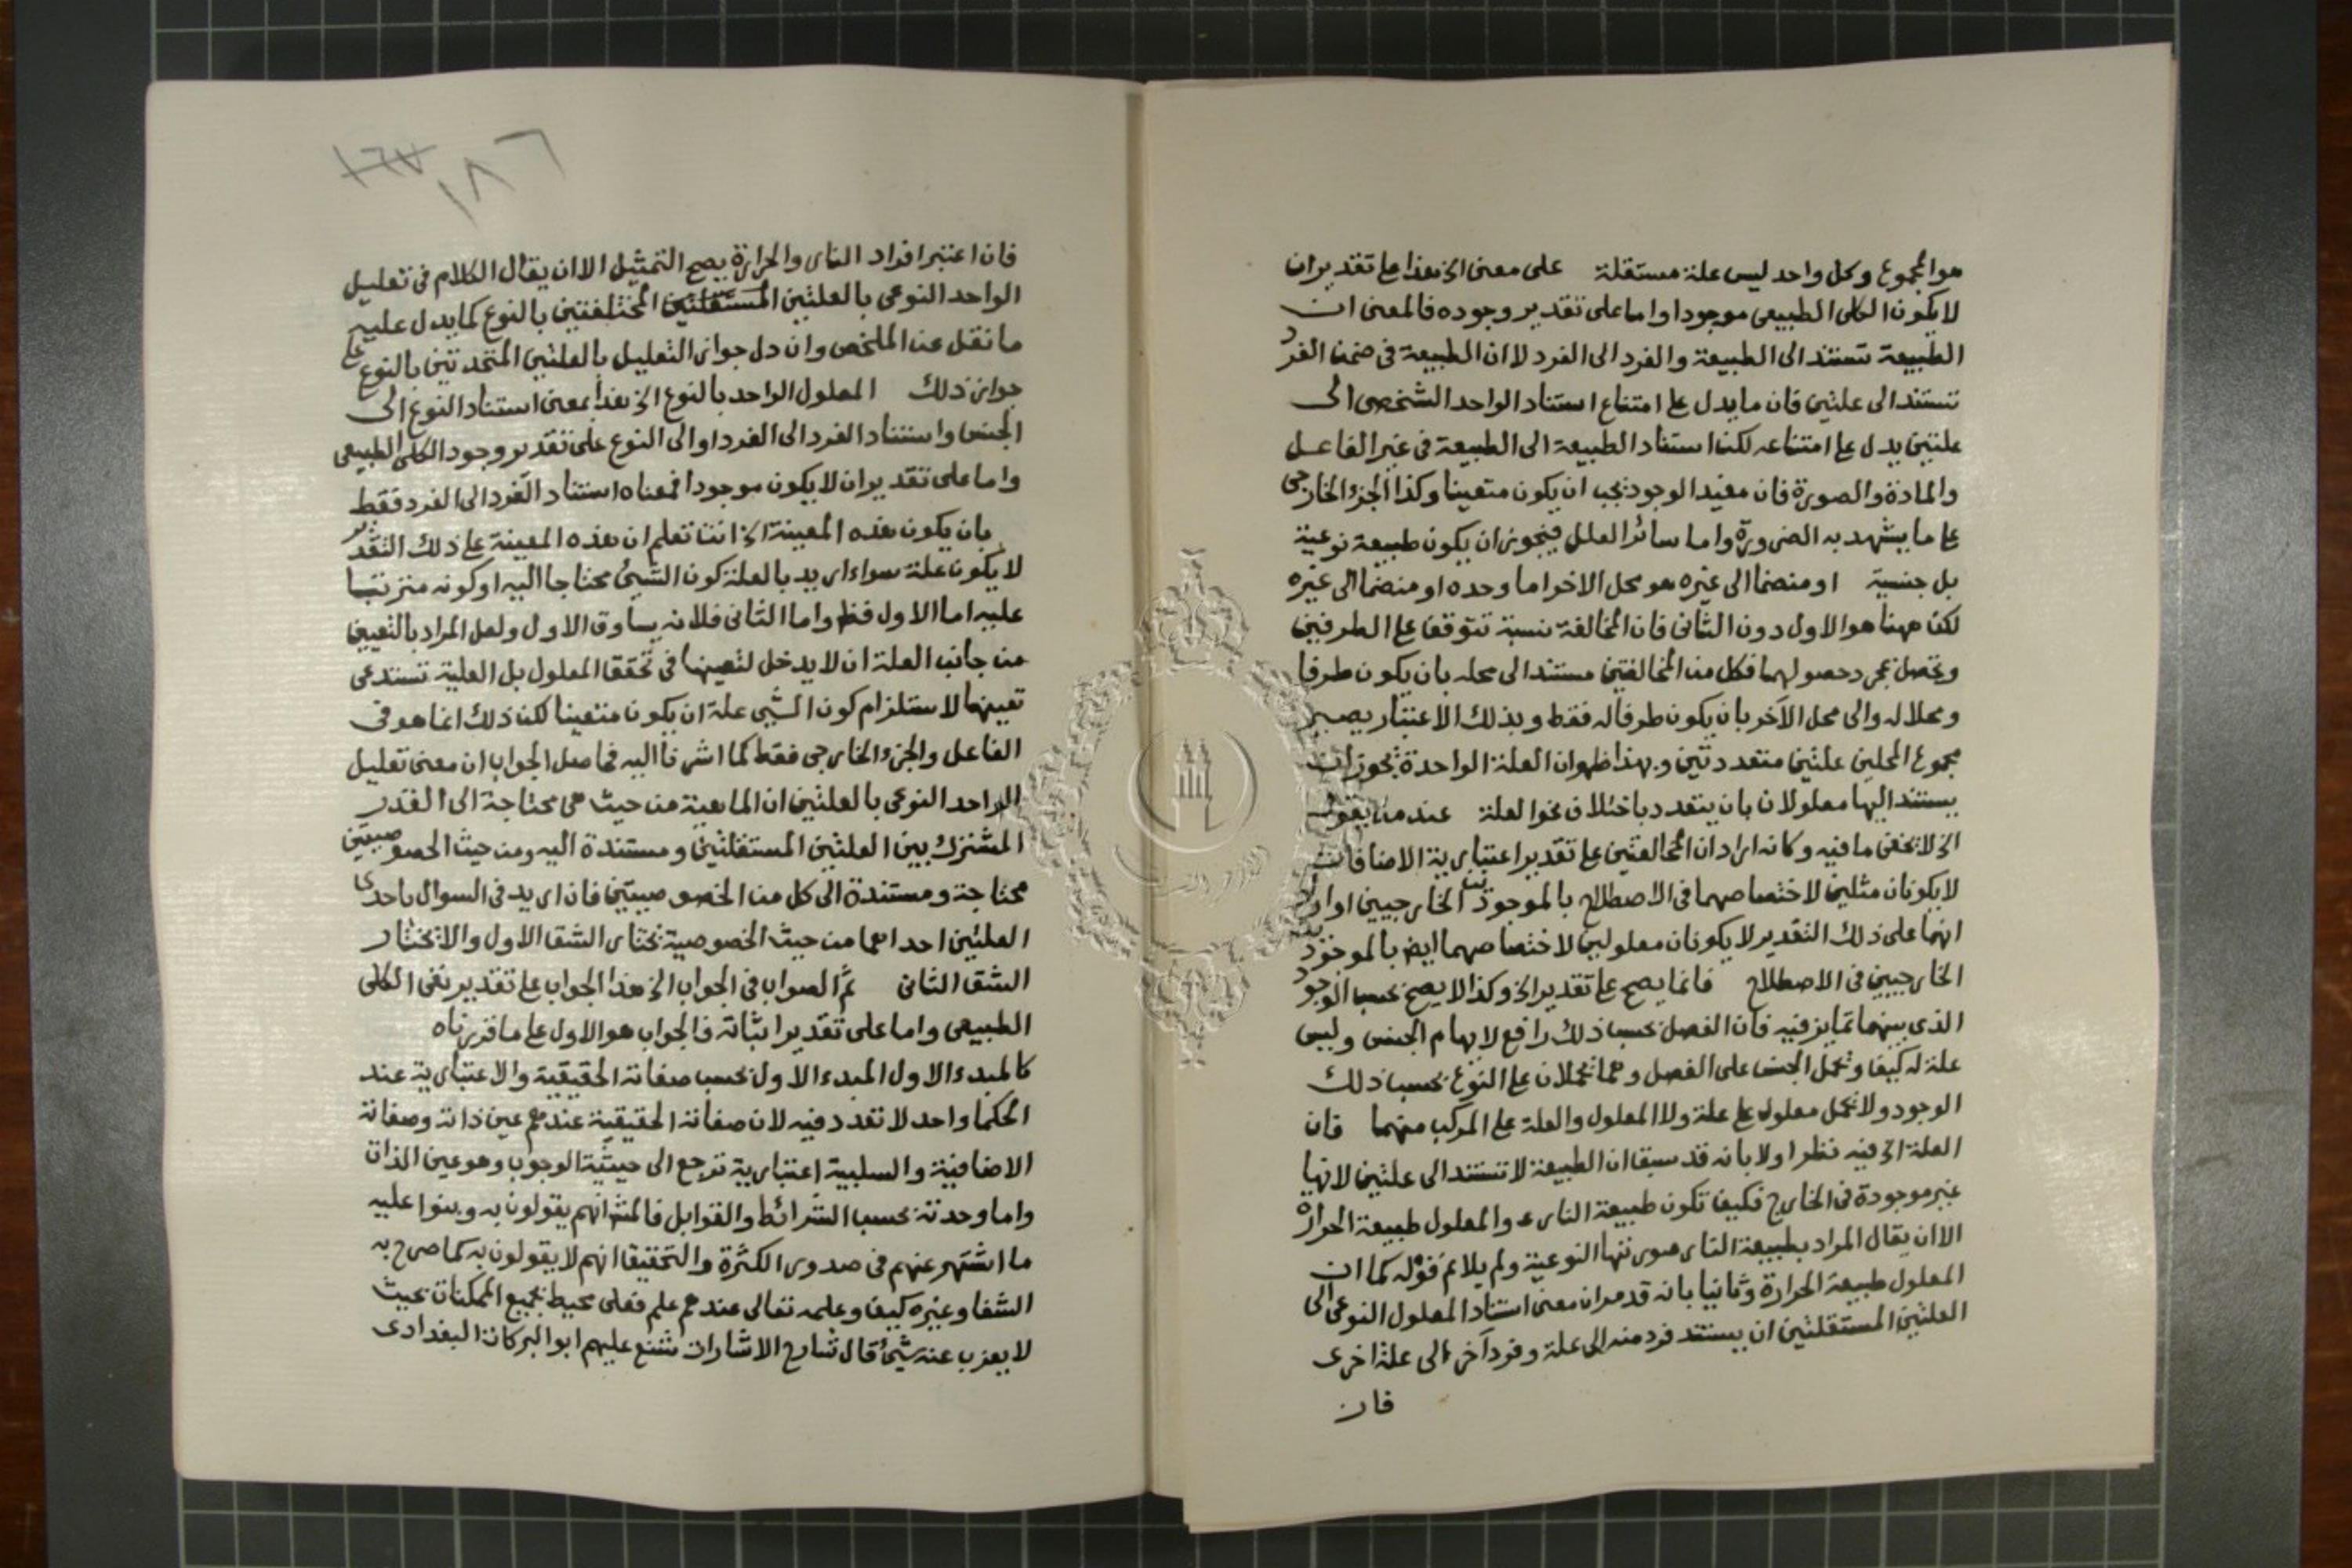 هو المجموع وكل واحد ليس علة مستقلة على معنى الخ هذا على تقدير ان
لا يكون الكلى الطبيعى موجودا واما على تقدير وجوده فالمعنى ان
الطبيعة تستند الى الطبيعة والفرد الى الفرد لا ان الطبيعة في ضمن الفرد
تستند الى علتين فان ما يدل على امتناع استناد الواحد الشخصى الى
علتين يدل على امتناعه لكن استناد الطبيعة الى الطبيعة في غير الفاعل
والمادة والصورة فان مفيد الوجود يجب ان يكون متعينا وكذا الجزء الخارجى
على ما يشهد به الضرورة واما سائر العلل فيجوز ان يكون طبيعة نوعية
بل جنسية او منضما الى غيره هو محل الاخر اما وحده او منضما الى غيره
لكن ههنا هو الاول دون الثانى فان المخالفة نسبة تتوقف على الطرفين
وتحصل بمجرد حصولهما فكل من المخالفتين مستند الى محله بان يكون طرفا
ومحلا له والى محل الآخر بان يكون طرفا له فقط وبذلك الاعتبار يصير
مجموع المحلين علتين متعددتين وبهذا ظهر ان العلة الواحدة يجوز ان
يستند اليها معلولان بان يتعدد باختلاف نحو العلة عند من يقول
الخ لا يخفى ما فيه وكانه اراد ان المخالفتين على تقدير اعتبارية الاضافات
لا يكونان مثلين لاختصاصهما في الاصطلاح بالموجودين الخارجيين او اراد
انهما على ذلك التقدير لا يكونان معلولين لاختصاصهما ايض بالموجودين
الخارجيين في الاصطلاح فانما يصح على تقدير الخ وكذا لا يصح بحسب الوجود
الذى بينهما تمايز فيه فان الفصل بحسب ذلك رافع لابهام الجنس وليس
علة له كيف ويحمل الجنس على الفصل وهما يحملان على النوع بحسب ذلك
الوجود ولا يحمل معلول على علة ولا المعلول والعلة على المركب منهما فان
العلة الخ فيه نظر اولا بانه قد سبق ان الطبيعة لا تستند الى علتين لانها
غير موجودة في الخارج فكيف تكون طبيعة النار علة والمعلول طبيعة الحرارة
الا ان يقال المراد بطبيعة النار صورتها النوعية ولم يلائم قوله كما ان
المعلول طبيعة الحرارة وثانيا بانه قد مر ان معنى استناد المعلول النوعى الى
العلتين المستقلتين ان يستند فرد منه الى علة وفرد آخر الى علة اخرى
فان
١٦٧ ١٨٦
فان اعتبر افراد النار والحرارة يصح التمثيل الا ان يقال الكلام في تعليل
الواحد النوعى بالعلتين المستقلتين المختلفتين بالنوع كما يدل عليه
ما نقل عن الملخص وان دل جواز التعليل بالعلتين المتحدتين بالنوع على
جواز ذلك المعلول الواحد بالنوع الخ هذا بمعنى استناد النوع الى
الجنس واستناد الفرد الى الفرد او الى النوع على تقدير وجود الكلى الطبيعى
واما على تقدير ان لا يكون موجودا فمعناه استناد الفرد الى الفرد فقط
بان يكون هذه المعينة الخ انت تعلم ان هذه المعينة على ذلك التقدير
لا يكون علة سواء اريد بالعلة كون الشيئ محتاجا اليه او كونه مترتبا
عليه اما الاول فظ واما الثانى فلانه يساوق الاول ولعل المراد بالتعيين
من جانب العلة ان لا يدخل لتعينها في تحقق المعلول بل العلية تستدعى
تعينها لاستلزام كون الشيى علة ان يكون متعينا لكن ذلك انما هو في
الفاعل والجزء الخارجى فقط كما اشرنا اليه فحاصل الجواب ان معنى تعليل
الواحد النوعى بالعلتين ان الماهية من حيث هى محتاجة الى القدر
المشترك بين العلتين المستقلتين ومستندة اليه ومن حيث الخصوصيتين
محتاجة ومستندة الى كل من الخصوصيتين فان اريد في السوال باحدى
العلتين احداهما من حيث الخصوصية نختار الشق الاول والا نختار
الشق الثانى ثم الصواب في الجواب الخ هذا الجواب على تقدير نفى الكلى
الطبيعى واما على تقدير اثباته فالجواب هو الاول على ما قررناه
كالمبدء الاول المبدء الاول بحسب صفاته الحقيقية والاعتبارية عند
الحكما واحد لا تعدد فيه لان صفاته الحقيقية عندهم عين ذاته وصفاته
الاضافية والسلبية اعتبارية ترجع الى حيثية الوجوب وهو عين الذات
واما وحدته بحسب الشرائط والقوابل فالمشه انهم يقولون به وبنوا عليه
ما اشتهر عنهم في صدور الكثرة والتحقيق انهم لا يقولون به كما صرح به
الشفا وغيره كيف وعلمه تعالى عندهم علم فعلى محيط بجميع الممكنات بحيث
لا يعزب عنه شيئ قال شارح الاشارات شنع عليهم ابو البركات البغدادى